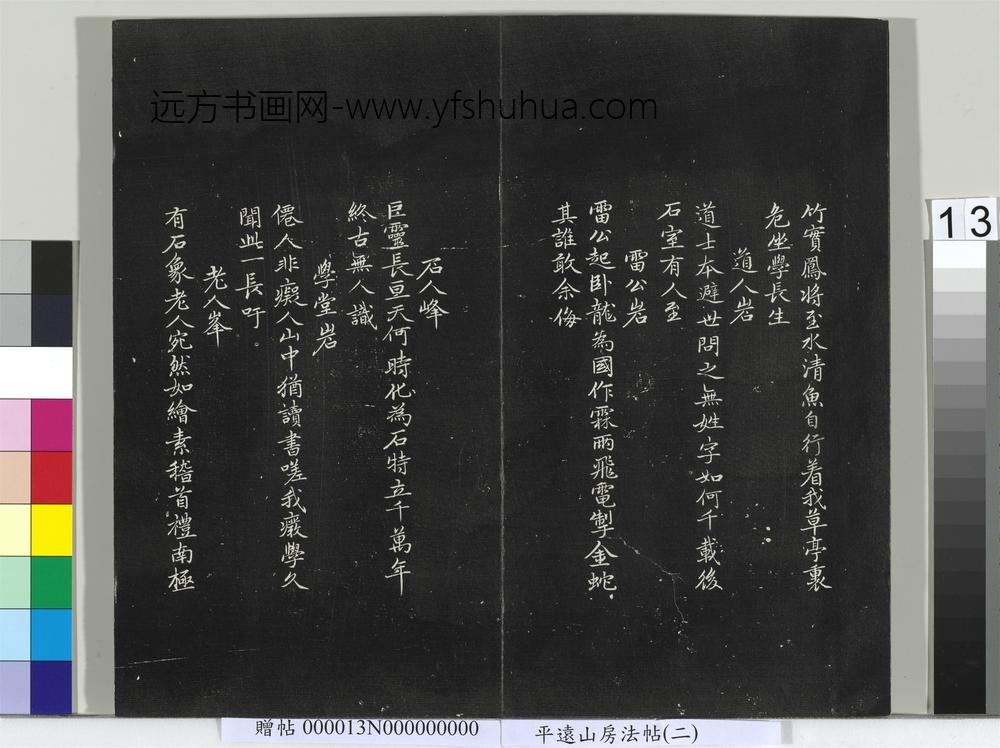 远方书画网-www.yfshuhua.com
竹實鳳將至水清魚自行着我草亭裏
危坐學長生
道人岩
道士本避世問之無姓字如何千載後
石室有人至
雷公岩
雷公起卧龍為國作霖雨飛電掣金蛇
其誰敢余侮
石人峰
巨靈長亘天何時化為石特立千萬年
終古無人識
學堂岩
僊人非癡人山中猶讀書嗟我癈學久
聞此一長吁
老人峯
有石象老人宛然如繪素稽首禮南極
13
贈帖 000013N000000000
平遠山房法帖(二)